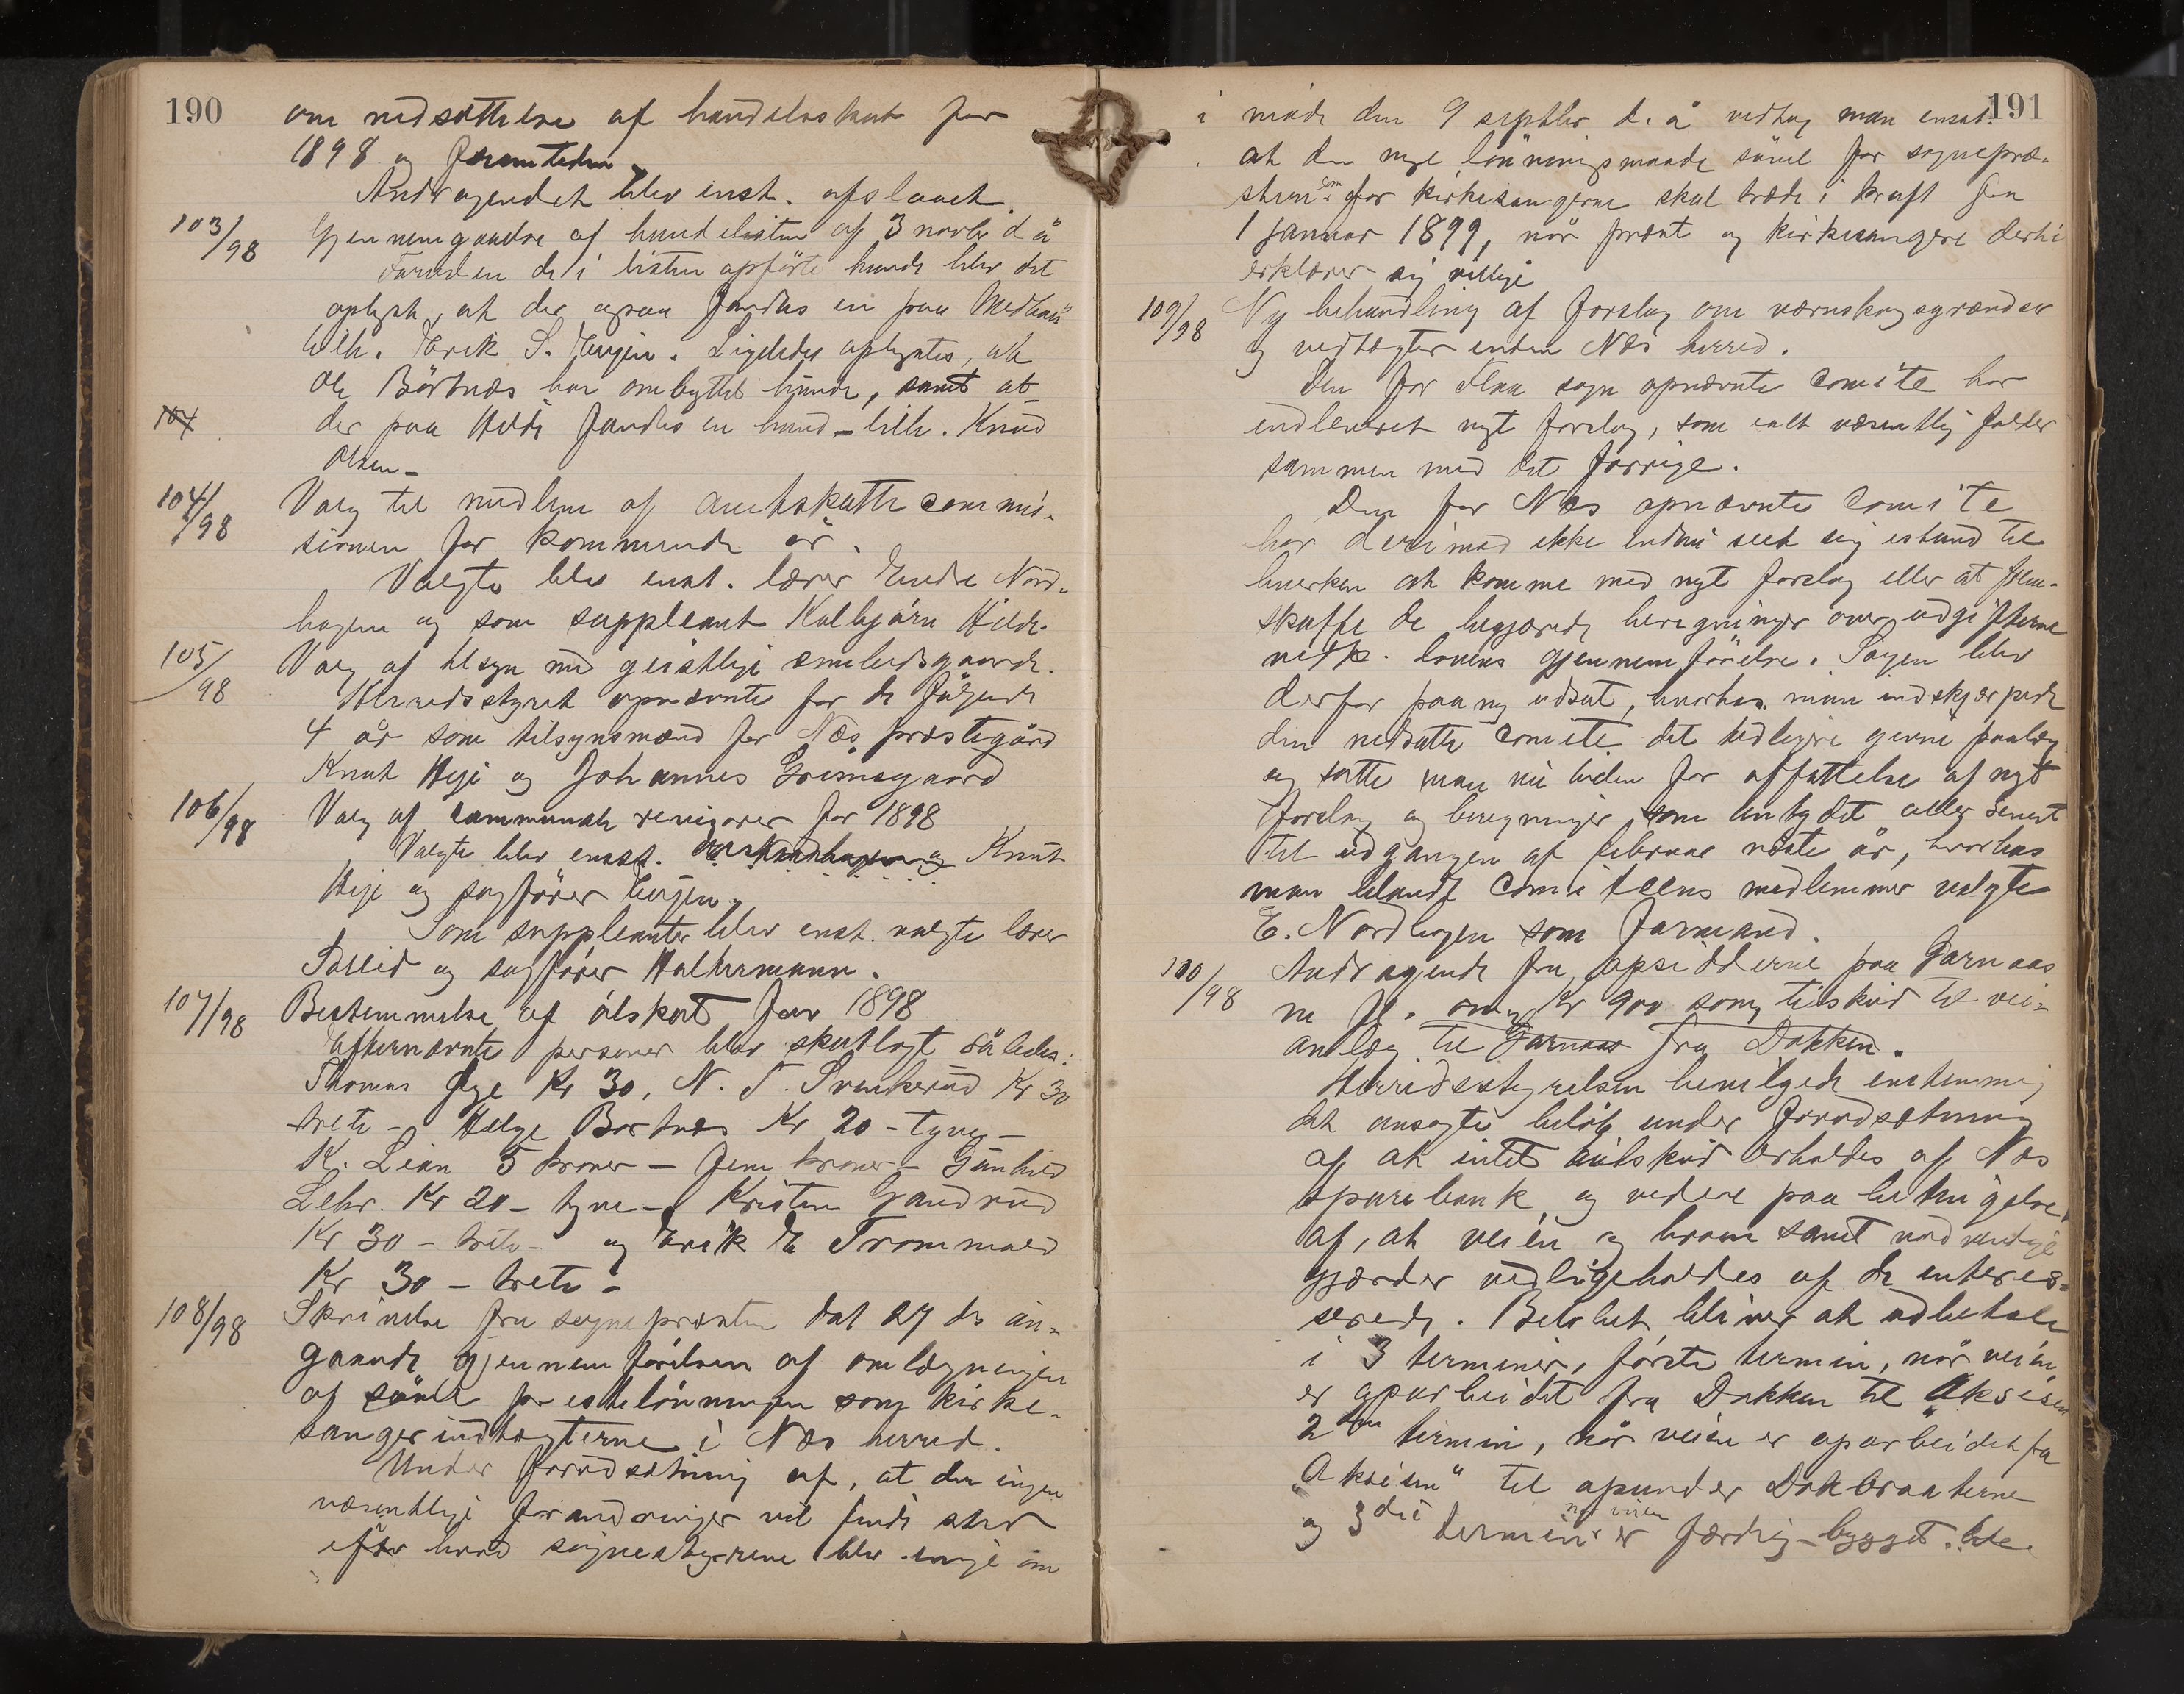 190
om nedsættelse af handelsskat for
1898 og fremtiden.
Andragendet blev enst. afslaaet.
103/98 Gjennemgaaelse af hundelisten af 3 novbr d å
Foruden de i listen opførte hunde blev det
oplyst, at der ogsaa fandtes en paa
tilh. Erik S. Ligeledes oplystes, at
Ole Børtnæs har ombyttet hunde, samt at
104 der paa Hilde fandtes en hund – tilh. Knud
Olsen –
104/98 Valg til medlem af amtsskattecommis-
sionen for kommende år.
Valgte blev enst. lærer Endre Nord-
hagen og som suppleant Kolbjørn Hilde.
105/98 Valg af tilsyn med geistlige embedsgaarde.
Herredsstyret opnævnte for de følgende
4 år som tilsynsmænd for Næs præstegård
Knut Heje og Johannes Grimsgaard
106/98 Valg af communale revisorer for 1898
Valgte blev enst. Knut
Heje og sagfører
Som suppleanter blev enst. valgte lærer
og sagfører Haltermann.
107/98 Bestemmelse af ölskat for 1898
Efternævnte personer blev skatlagt således:
Thomas Øye Kr 30, N. T. Svenkerud Kr 30
treti – Helge Bortnæs Kr 20 – tyve –
K. Lein 5 kroner – fem kroner – Gunhild
Lehr. Kr 20 – tyve – Kristen Gandrud
Kr 30 – treti – og Erik E Trommald
Kr 30 – treti –
108/98 Skrivelse fra sognepræsten dat 27 ds an-
gaaende gjennemførelsen af omlægningen
af såvel prestelönningen som kirke-
sangerindtægterne i Næs herred.
Under forudsætning af, at der ingen
væsentlige forandringer vil finde sted
efter hvad sognestyrerne blev enige om
191
i møde den 9 septbr d. å vedtog man enst.
at den nye lönningsmaade såvel for sognepræ-
sten som for kirkesangerne skal træde i kraft fra
1 januar 1899, når præst og kirkesangere dertil
erklærer sig villige
109/98 Ny behandling af forslag om værnskogsgrændser
og vedtægter inden Næs herred.
Den for Flaa sogn opnævnte comite har
indleveret nyt forslag, som ialt væsentlig falder
sammen med det forrige.
Den for Næs opnævnte comite
har derimod ikke endnu seet sig istand til
hverken at komme med nyt forslag eller at frem-
skaffe de begjærede beregninger over udgifterne
vedk. lovens gjennemførelse. Sagen blev
derfor paany udsat, hvorhos man indskjærpede
den nedsatte comite det tidligere givne paalæg
og satte man nu tiden for affattelse af nyt
forslag og beregninger som antydet aller senest
til udgangen af februar næste år, hvorhos
man blandt comiteens medlemmer valgte
E. Nordhagen som formand.
110/98 Andragende fra opsidderne paa Garnaas
m fl. om Kr 900 som tilskud til vei-
anlæg til Garnaas fra Dokken.
Herredsstyrelsen bevilgede enstemmig
det ansøgte beløb under forudsætning
af at intet tilskud erholdes af Næs
sparebank, og videre paa betingelse
af, at veien og broen samt nødvendige
gjærder vedligeholdes af de interes-
serede. Beløbet bliver at udbetale
i 3 terminer, første termin, når veien
er oparbeidet fra Dokken til "Aksisen
2den termin, når veien er oparbeidet fra
"Aksisen" til opunder Dokbraaterne
og 3die termin når veien er færdig-bygget.